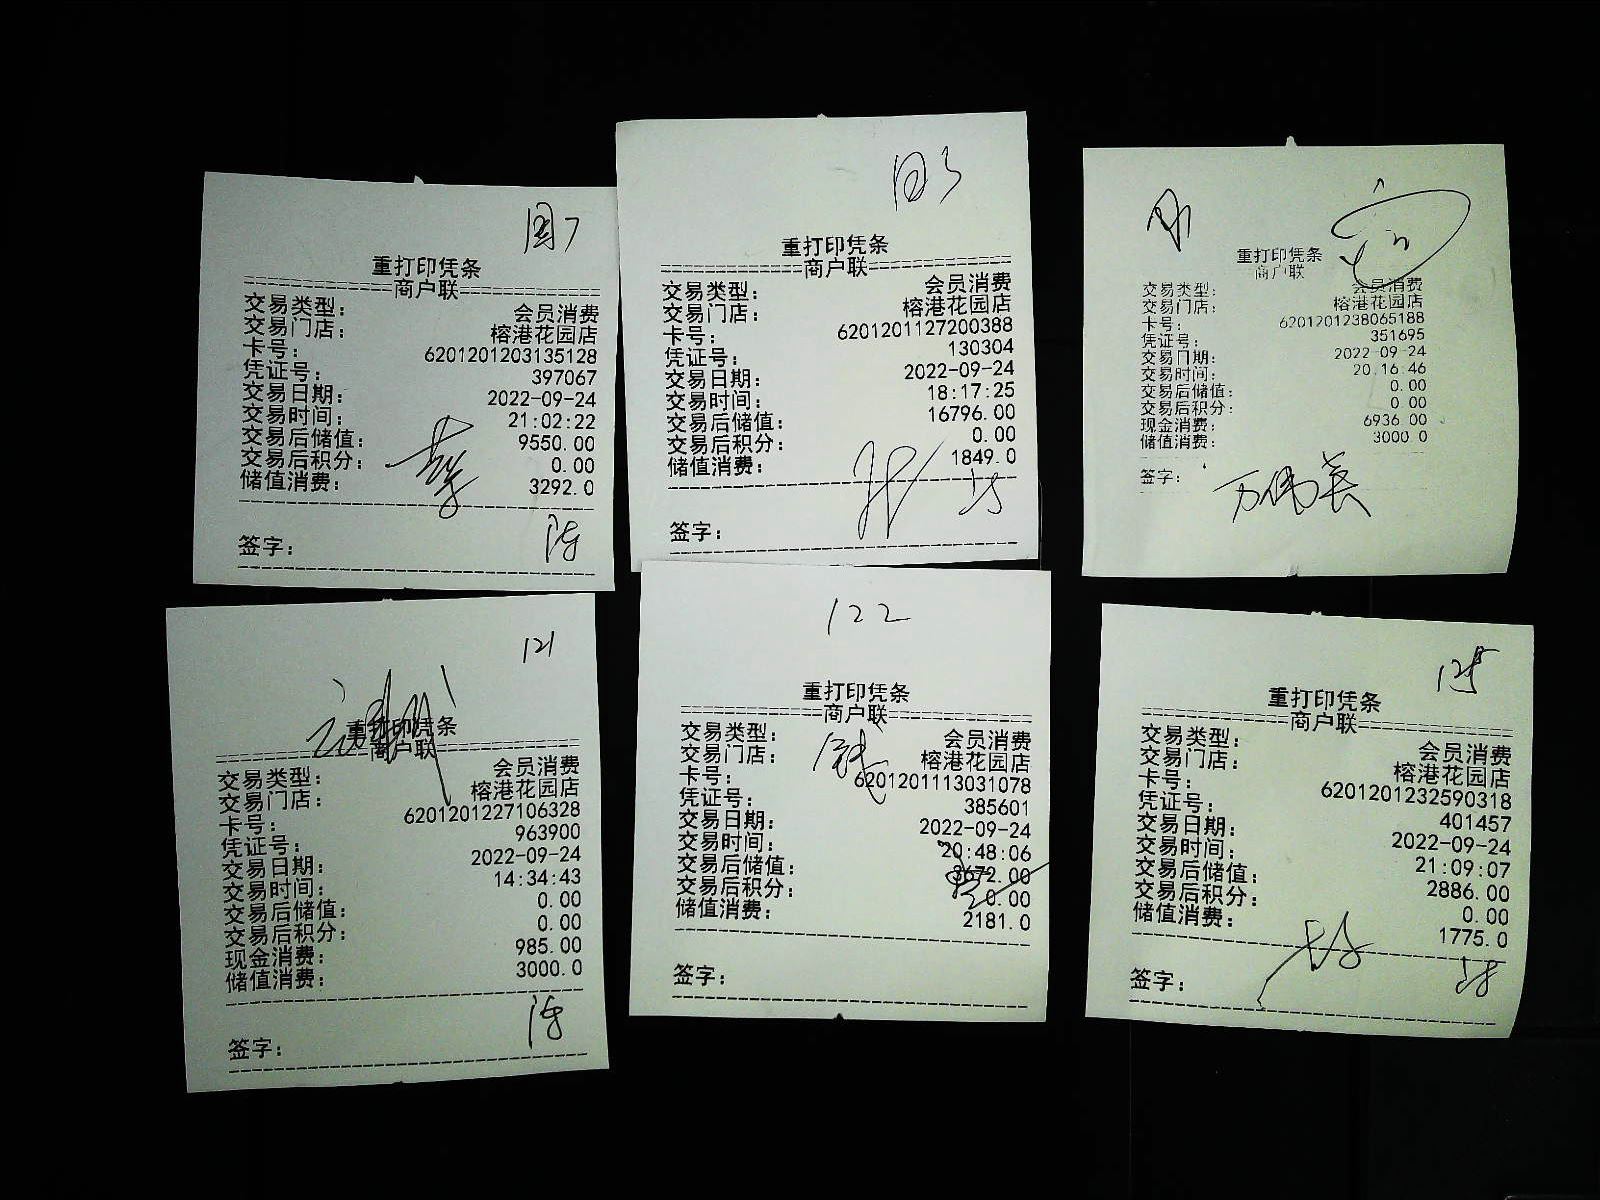 重打印凭条
商户联
交易类型： 会员消费
交易门店： 榕港花园店
卡号： 6201201203135128
凭证号： 397067
交易日期： 2022-09-24
交易时间： 21:02:22
交易后储值： 9550.00
交易后积分： 0.00
储值消费： 3292.0
签字：
重打印凭条
商户联
交易类型： 会员消费
交易门店： 榕港花园店
卡号： 6201201127200388
凭证号： 130304
交易日期： 2022-09-24
交易时间： 18:17:25
交易后储值： 16796.00
交易后积分： 0.00
储值消费： 1849.0
签字：
重打印凭条
商户联
交易类型： 会员消费
交易门店： 榕港花园店
卡号： 6201201238065188
凭证号： 351695
交易日期： 2022-09-24
交易时间： 20:16:46
交易后储值： 0.00
交易后积分： 0.00
现金消费： 6936.00
储值消费： 3000.0
签字： 万伟英
121
重打印凭条
商户联
交易类型： 会员消费
交易门店： 榕港花园店
卡号： 6201201227106328
凭证号： 963900
交易日期： 2022-09-24
交易时间： 14:34:43
交易后储值： 0.00
交易后积分： 0.00
现金消费： 985.00
储值消费： 3000.0
签字：
122
重打印凭条
商户联
交易类型： 会员消费
交易门店： 榕港花园店
卡号： 6201201113031078
凭证号： 385601
交易日期： 2022-09-24
交易时间： 20:48:06
交易后储值： 3672.00
交易后积分： 0.00
储值消费： 2181.0
签字：
125
重打印凭条
商户联
交易类型： 会员消费
交易门店： 榕港花园店
卡号： 6201201232590318
凭证号： 401457
交易日期： 2022-09-24
交易时间： 21:09:07
交易后储值： 2886.00
交易后积分： 0.00
储值消费： 1775.0
签字：